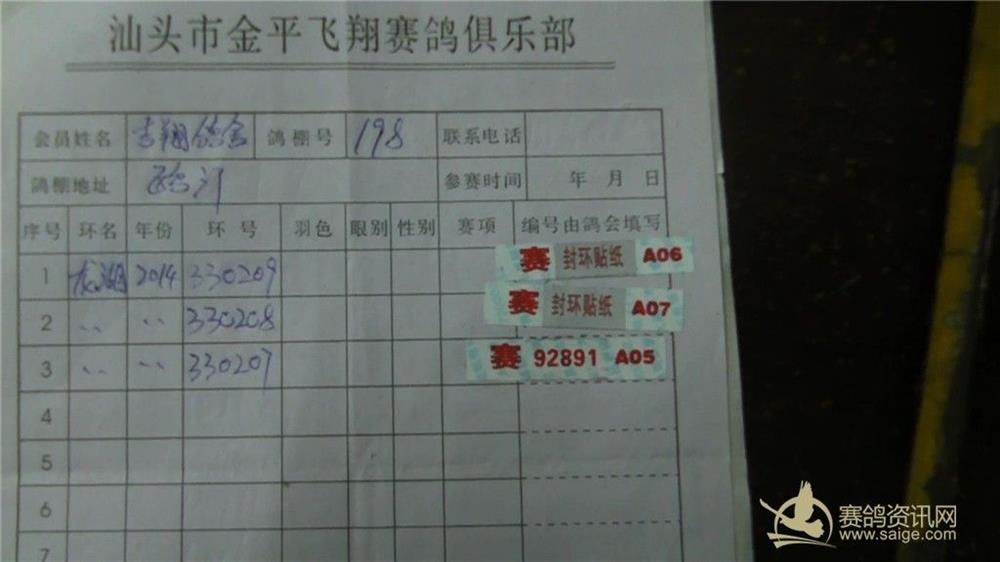 汕头市金平飞翔赛鸽俱乐部
会员姓名 吉翔鸽舍 鸽棚号 198 联系电话
鸽棚地址 参赛时间 年 月 日
序号 环名 年份 环号 羽色 眼别 性别 赛项 编号由鸽会填写
1 龙湖 2014 330209 赛 封环贴纸 A06
2 〃 〃 330208 赛 封环贴纸 A07
3 〃 〃 330207 赛 92891 A05
4
5
6
7
赛鸽资讯网
www.saige.com